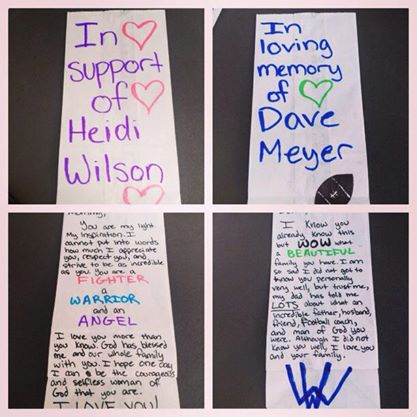 In
support
of
Heidi
Wilson
In
loving
memory
of
Dave
Meyer
Mommy,
You are my light.
My inspiration. I
cannot put into words
how much I appreciate
you, respect you, and
strive to be as incredible
as you. You are a
FIGHTER
a
WARRIOR
and an
ANGEL
I love you more than
you know. God has blessed
me and our whole family
with you. I hope one day
I can be the courageous
and selfless woman of
God that you are.
I LOVE YOU!
I know you
already know this
but WOW what
a BEAUTIFUL
family you have. I am
so sad I did not get to
know you personally
very well, but trust me,
my dad has told me
LOTS about what an
incredible father, husband,
friend, football coach,
and man of God you
were. Although I did not
know you well, I love you
and your family.